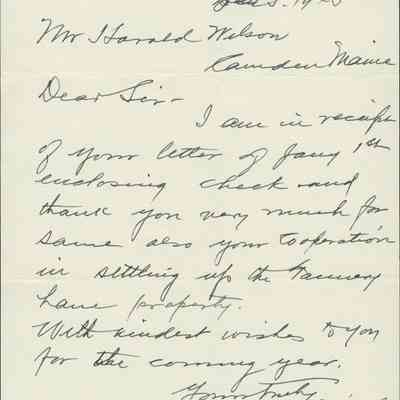 Mr Harold Wilson
Camden Maine
Dear Sir-
I am in receipt
of your letter of Jany 1st
enclosing check and
thank you very much for
same also your Cooperation
in settling up the Tannery
Lane property.
With kindest wishes to you
for the coming year.
Yours truly,